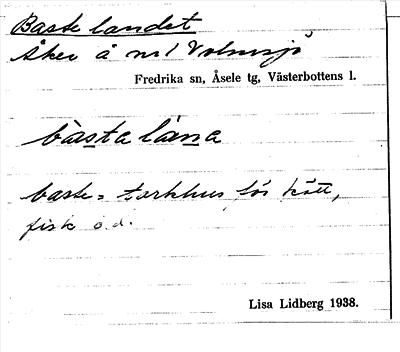 Baste landet
Åker å nr 1 Volmsjö
Fredrika sn, Åsele tg, Västerbottens l.
bàsta lána
baste = torkhus för kött,
fisk o.d.
Lisa Lidberg 1938.